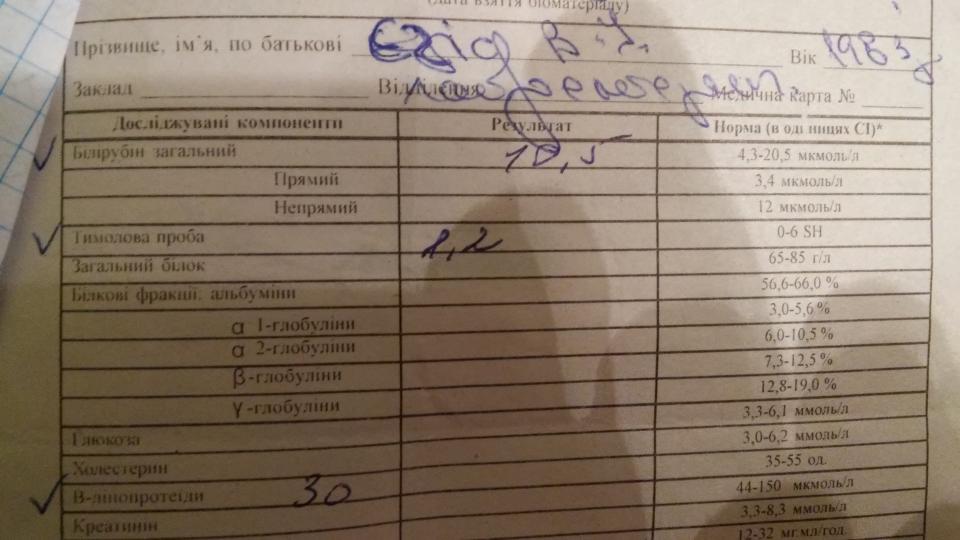 (дата взяття біоматеріалу)
Прізвище, ім'я, по батькові Вік 1983
Заклад Відділення Медична карта №
Досліджувані компоненти Результат Норма (в одиницях СІ)*
Білірубін загальний 10,5 4,3-20,5 мкмоль/л
Прямий 3,4 мкмоль/л
Непрямий 12 мкмоль/л
Тимолова проба 1,2 0-6 SH
Загальний білок 65-85 г/л
Білкові фракції: альбуміни 56,6-66,0 %
α 1-глобуліни 3,0-5,6 %
α 2-глобуліни 6,0-10,5 %
β-глобуліни 7,3-12,5 %
γ-глобуліни 12,8-19,0 %
Глюкоза 3,3-6,1 ммоль/л
Холестерин 3,0-6,2 ммоль/л
В-ліпопротеїди 30 35-55 од.
Креатинін 44-150 мкмоль/л
3,3-8,3 ммоль/л
12-32 мг.мл/год.